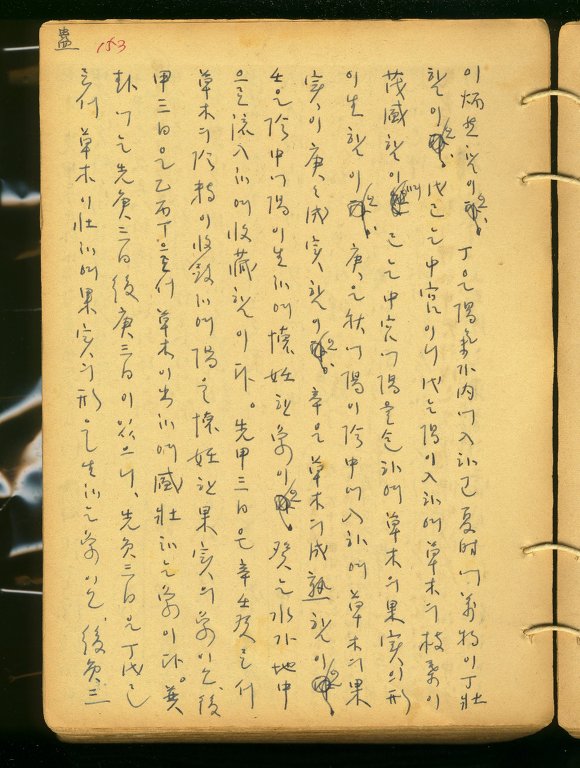 蠱 153
이炳然함이오。丁은陽氣가內에入하고夏時에萬物이丁壯
함이오。戊己는中宮이니戊는陽이入하야草木의枝葉이
茂盛함이며己는中宮에陽을包하야草木의果實이形
이生함이오。庚은秋에陽이陰中에入하야草木의果
實이庚庚成實함이오。辛은草木의成熟함이오。
壬은陰中에陽이生하야懷妊한象이오。癸는水가地中
으로流入하야收藏함이다。先甲三日은辛壬癸로서
草木의陰 收斂하야陽을懷妊한果實의象이오後
甲三日은乙丙丁으로서草木이出하야盛壯하는象이다。巽
卦에는先庚三日後庚三日이있으니、先庚三日은丁戊己
로서草木이壯하야果實의形을生하는象이오、後庚三